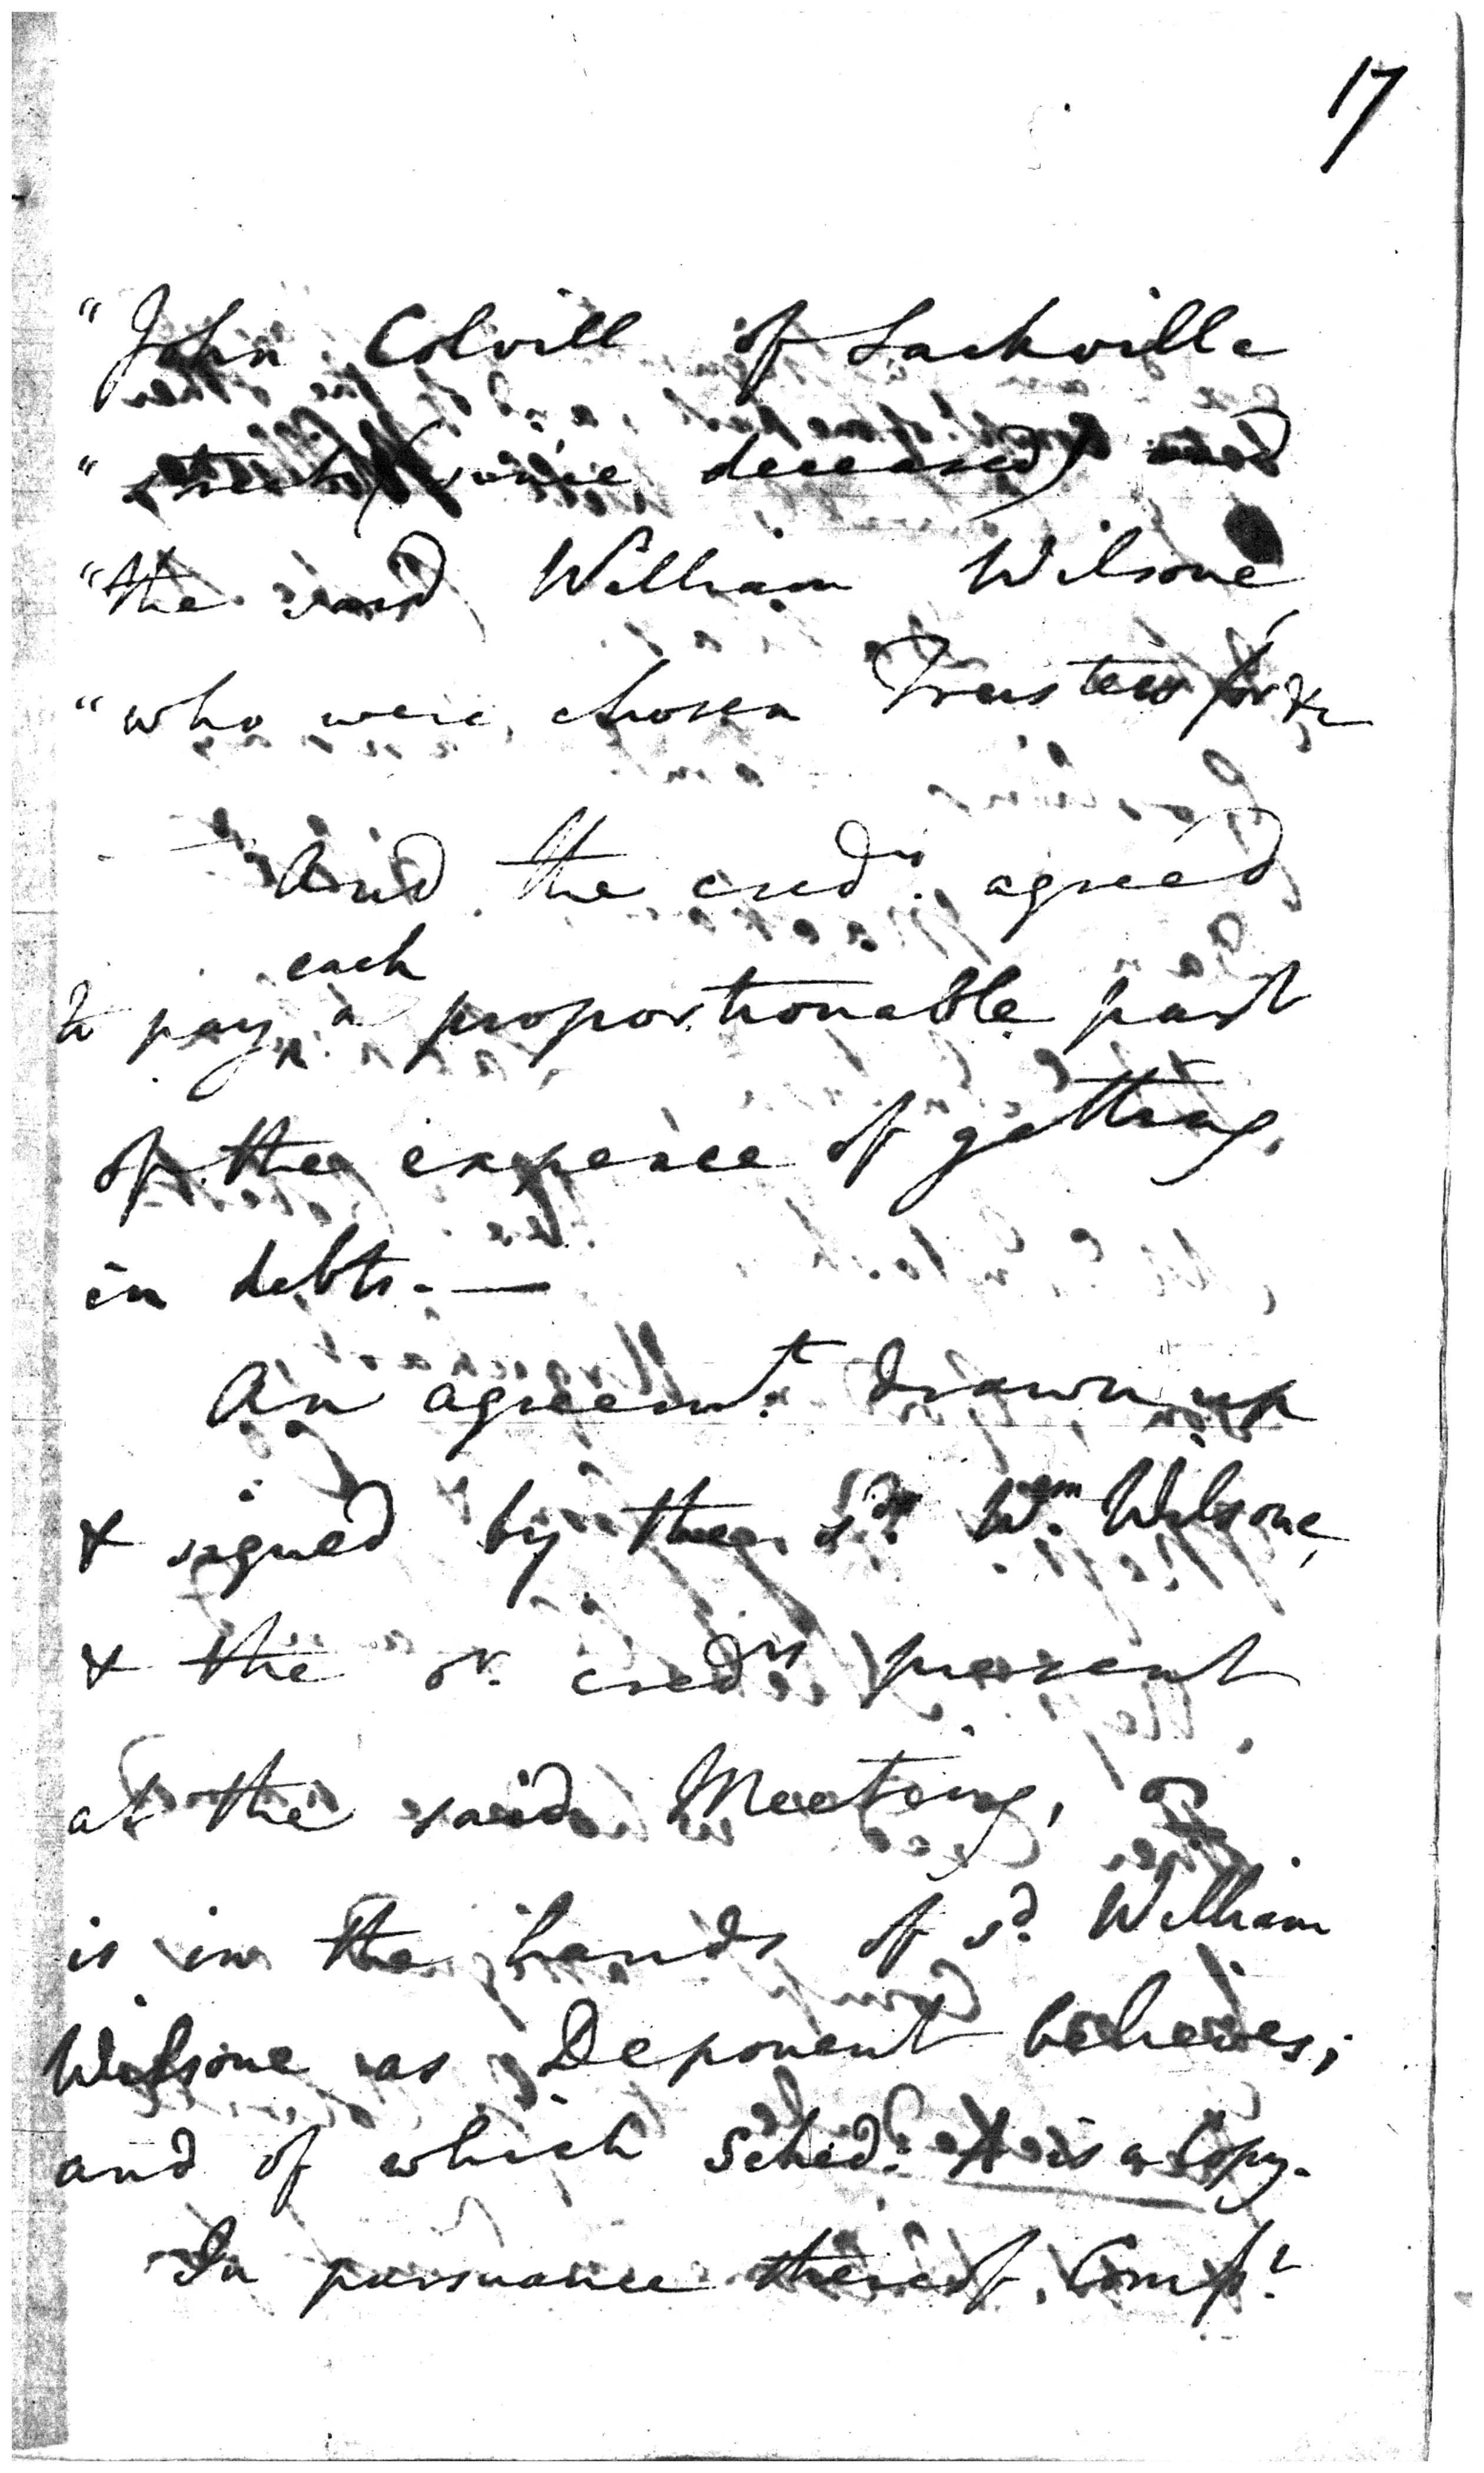 17
"John Colvill of Sackville
"street (since deceased) and
"the said William Wilsone,
"who were chosen Trustees for &c
And the cred.rs agreed
each
to pay ^ a proportionable part
of the expence of getting
in debts. —
An agreem.t drawn up
& signed by the s.d W.m Wilsone,
& the or. cred.rs present
at the said Meeting,
is in the hands of s.d William
Wilsone as Deponent believes;
and of which Sched: is a Copy.
In pursuance thereof, Comp.t